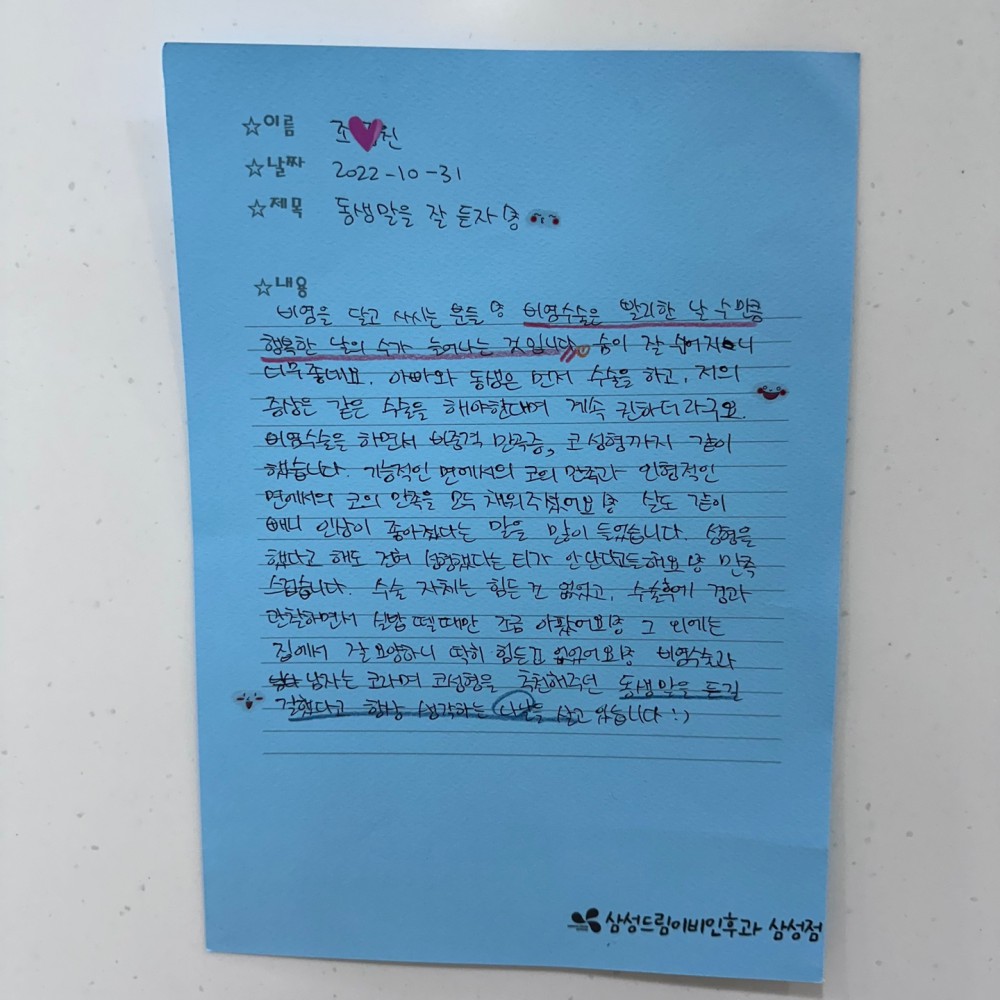 ☆이름 조 진
☆날짜 2022-10-31
☆제목 동생말을 잘 듣자
☆내용
비염을 달고 사시는 분들 비염수술은 빨리한 날 수만큼
행복한 날의 수가 늘어나는 것입니다 숨이 잘 쉬어지니
너무좋네요. 아빠와 동생은 먼저 수술을 하고, 저의
증상은 같은 수술을 해야한대며 계속 권하더라구요.
비염수술을 하면서 비중격 만곡증, 코 성형까지 같이
했습니다. 기능적인 면에서의 코의 만족과 외형적인
면에서의 코의 만족을 모두 채워주셨어요 살도 같이
빼니 인상이 좋아졌다는 말을 많이 들었습니다. 성형을
했다고 해도 전혀 성형했다는 티가 안난다고들해요 만족
스럽습니다. 수술 자체는 힘든고 없었고, 수술후에 경과
관찰하면서 실밥 뗄때만 조금 아팠어요 그 외에는
집에서 잘 요양하니 딱히 힘든고 없었어요 비염수술과
남자는 코라며 코성형을 추천해주던 동생말을 듣길
잘했다고 항상 생각하는 나날을 살고 있습니다 :)
삼성드림이비인후과 삼성점